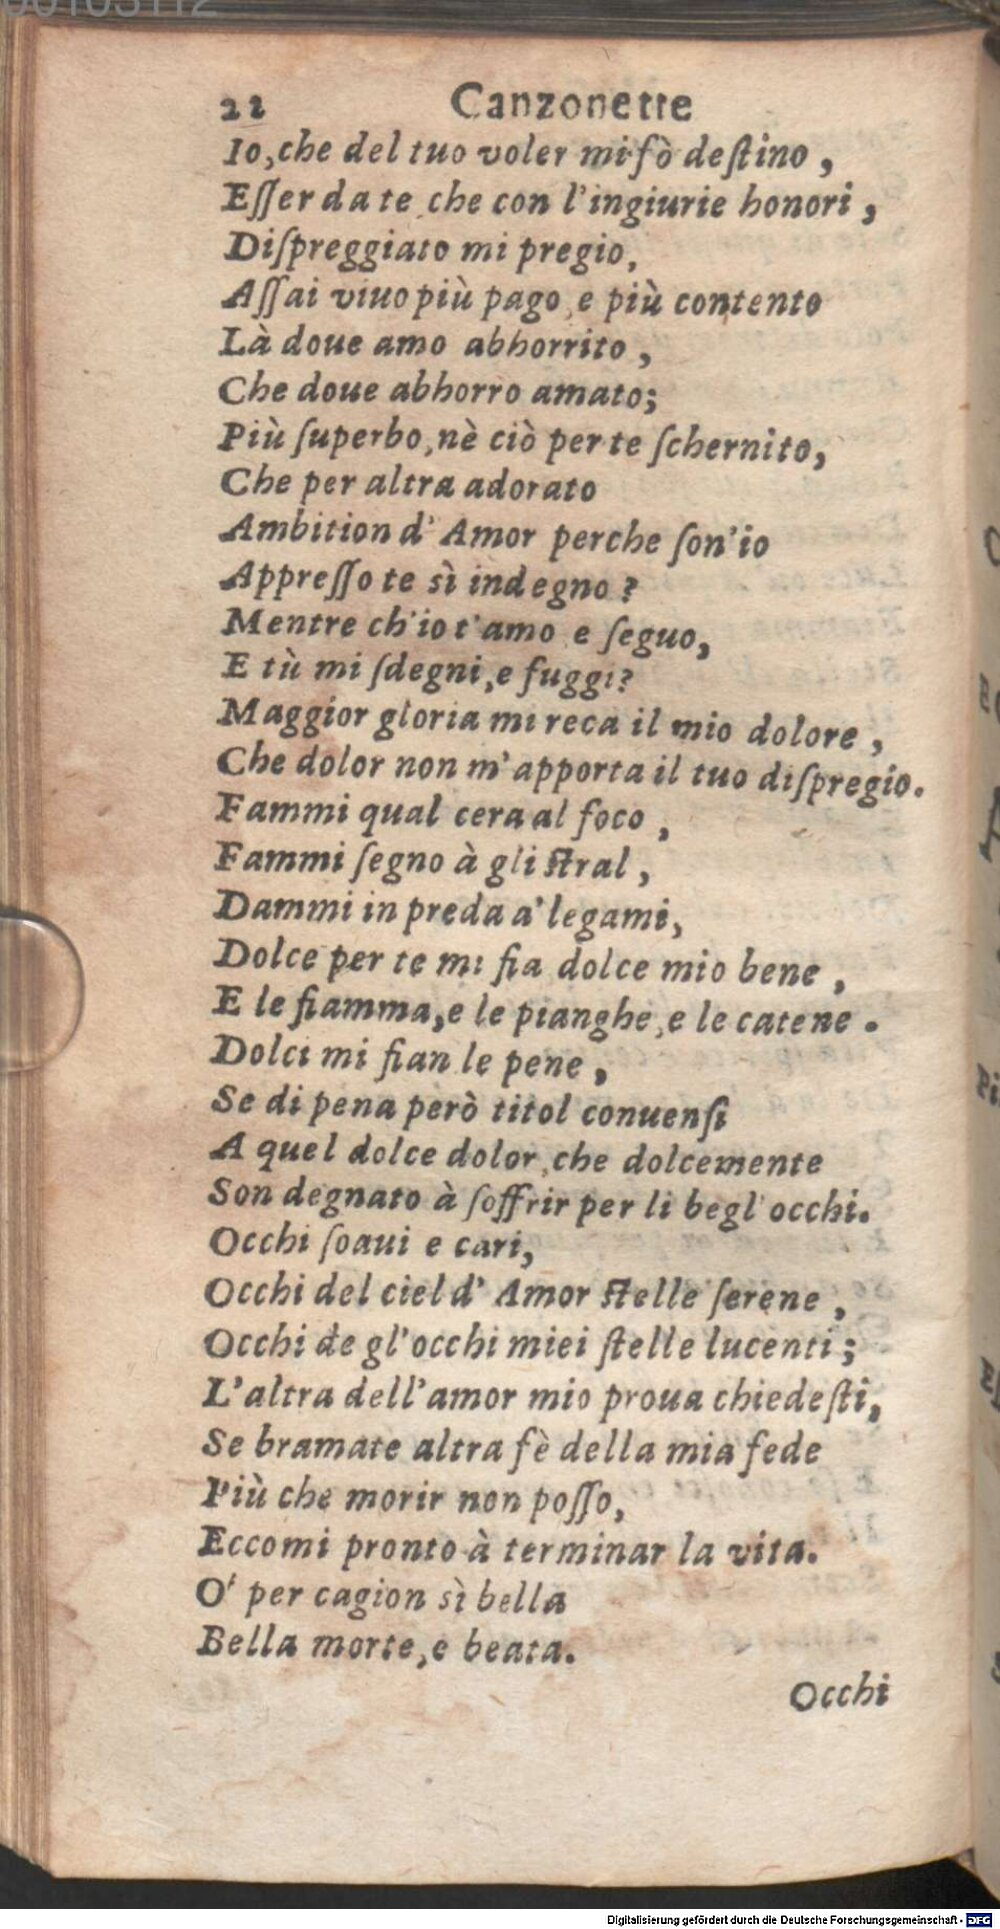 22 Canzonette
Io, che del tuo voler mi fò deſtino,
Eſſer da te che con l'ingiurie honori,
Diſpreggiato mi pregio,
Aſſai viuo più pago, e più contento
Là doue amo abhorrito,
Che doue abhorro amato;
Più ſuperbo, nè ciò per te ſchernito,
Che per altra adorato
Ambition d'Amor perche ſon'io
Appreſſo te sì indegno?
Mentre ch'io t'amo e ſeguo,
E tù mi ſdegni, e fuggi?
Maggior gloria mi reca il mio dolore,
Che dolor non m'apporta il tuo diſpregio.
Fammi qual cera al foco,
Fammi ſegno à gli ſtral,
Dammi in preda a' legami,
Dolce per te mi fia dolce mio bene,
E le fiamma, e le pianghe, e le catene.
Dolci mi fian le pene,
Se di pena però titol conuenſi
A quel dolce dolor, che dolcemente
Son degnato à ſoffrir per li begl'occhi.
Occhi ſoaui e cari,
Occhi del ciel d'Amor ſtelle ſerene,
Occhi de gl'occhi miei ſtelle lucenti;
L'altra dell'amor mio proua chiedeſti,
Se bramate altra fè della mia fede
Più che morir non poſſo,
Eccomi pronto à terminar la vita.
O' per cagion sì bella
Bella morte, e beata.
Occhi
Digitalisierung gefördert durch die Deutsche Forschungsgemeinschaft - DFG